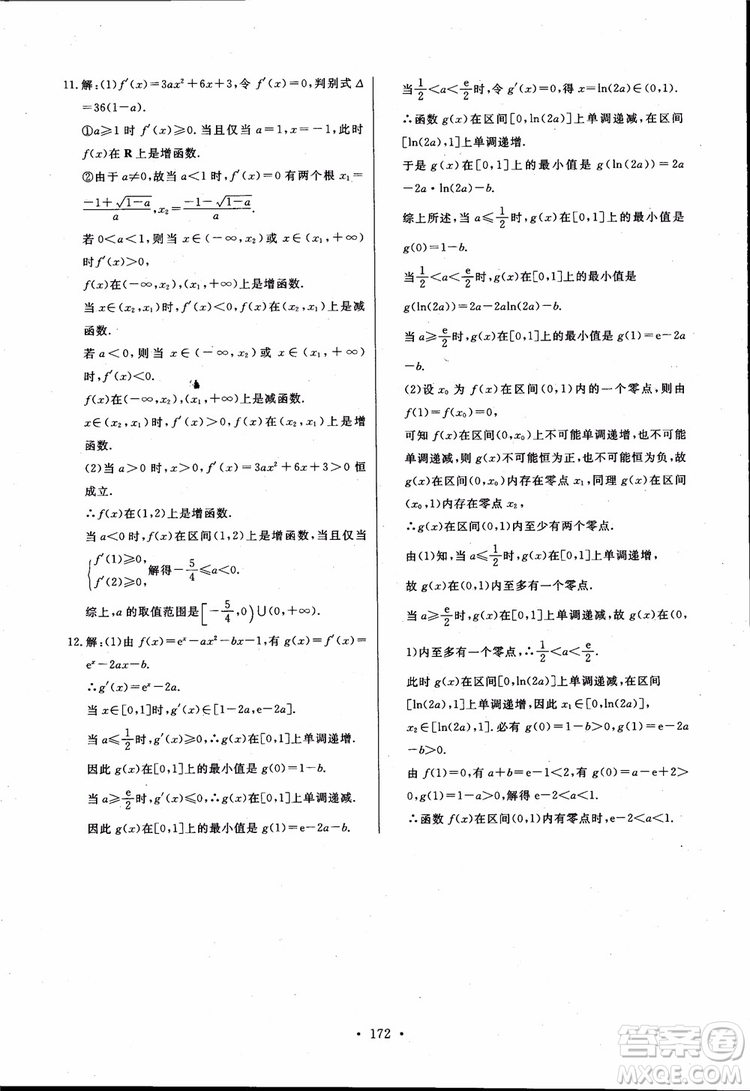 11.解:(1)f′(x)=3ax²+6x+3,令 f′(x)=0,判别式 Δ
=36(1-a).
①a≥1 时 f′(x)≥0.当且仅当 a=1,x=-1,此时
f(x)在 R 上是增函数.
②由于 a≠0,故当 a<1 时,f′(x)=0 有两个根 x₁=
(-1+√(1-a))/a,x₂=(-1-√(1-a))/a.
若 0<a<1,则当 x∈(-∞,x₂)或 x∈(x₁,+∞)
时f′(x)>0,
f(x)在(-∞,x₂),(x₁,+∞)上是增函数.
当 x∈(x₂,x₁)时,f′(x)<0,f(x)在(x₂,x₁)上是减
函数.
若 a<0,则当 x∈(-∞,x₁)或 x∈(x₂,+∞)
时,f′(x)<0.
f(x)在(-∞,x₂),(x₁,+∞)上是减函数.
x∈(x₁,x₂)时,f′(x)>0,f(x)在(x₁,x₂)上是增
函数.
(2)当 a>0,x>0,f′(x)=3ax²+6x+3>0 恒
成立.
∴f(x)在(1,2)上是增函数.
当 a<0 时,f(x)在区间(1,2)上是增函数,当且仅当
{f′(1)≥0,
f′(2)≥0, 解得-5/4≤a<0.
综上,a 的取值范围是[-5/4,0)∪(0,+∞).
12.解:(1)由 f(x)=eˣ-ax²-bx-1,有 g(x)=f′(x)=
eˣ-2ax-b.
∴g′(x)=eˣ-2a.
当 x∈[0,1]时,g′(x)∈[1-2a,e-2a].
当 a≤1/2时,g(x)在[0,1]上单调递增.
因此 g(x)在[0,1]上的最小值是 g(0)=1-b.
当 a≥e/2时,g(x)在[0,1]上单调递减.
因此 g(x)在[0,1]上的最小值是 g(1)=e-2a-b.
当1/2<a<e/2时,令 g′(x)=0,得 x=ln(2a)∈(0,1).
∴函数 g(x)在区间[0,ln(2a)]上单调递减,在区间
[ln(2a),1]上单调递增.
于是 g(x)在[0,1]上的最小值是 g(ln(2a))=2a
-2a·ln(2a)-b.
综上所述,当 a≤1/2时,g(x)在[0,1]上的最小值是
g(0)=1-b.
当1/2<a<e/2时,g(x)在[0,1]上的最小值是
g(ln(2a))=2a-2aln(2a)-b.
当 a≥e/2时,g(x)在[0,1]上的最小值是 g(1)=e-2a
-b.
(2)设 x₀ 为 f(x)在区间(0,1)内的一个零点,则由
f(1)=f(x₀)=0,
可知 f(x)在区间(0,x₀)上不可能单调递增,也不可能
单调递减,则 g(x)不可能恒为正,也不可能恒为负.
故 g(x)在区间(0,x₀)内存在零点 x₁,同理 g(x)在区
间(x₀,1)内存在零点 x₂.
∴g(x)在区间(0,1)内至少有两个零点.
由(1)知,当 a≤1/2时,g(x)在[0,1]上单调递增.
故 g(x)在(0,1)内至多有一个零点.
当 a≥e/2时,g(x)在[0,1]上单调递减,故 g(x)在(0,
1)内至多有一个零点,∴1/2<a<e/2.
此时 g(x)在区间[0,ln(2a)]上单调递减,在区间
[ln(2a),1]上单调递增,因此 x₁∈(0,ln(2a)],
x₂∈[ln(2a),1).必有 g(0)=1-b>0,g(1)=e-2a
-b>0.
由 f(1)=0,有 a+b=e-1<2,有 g(0)=a-e+2
>0,g(1)=1-a>0,解得 e-2<a<1.
∴函数 f(x)在区间(0,1)内有零点时,e-2<a<1.
• 172 •
答案卷
MXQE.COM